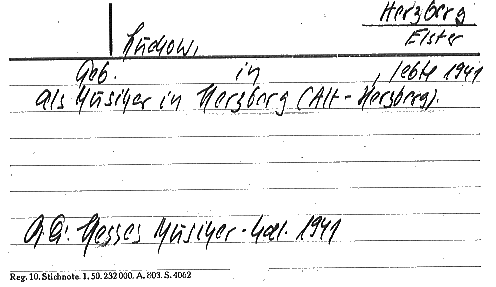 Herzberg
Elster
Lüdow,
Geb. in , lebte 1941
als Musiker in Herzberg (Alt-Herzberg).
Q.Q: Hesses Musiker-Kal. 1941
Reg. 10. Stichnote. 1. 50. 232 000. A. 803. S. 4062